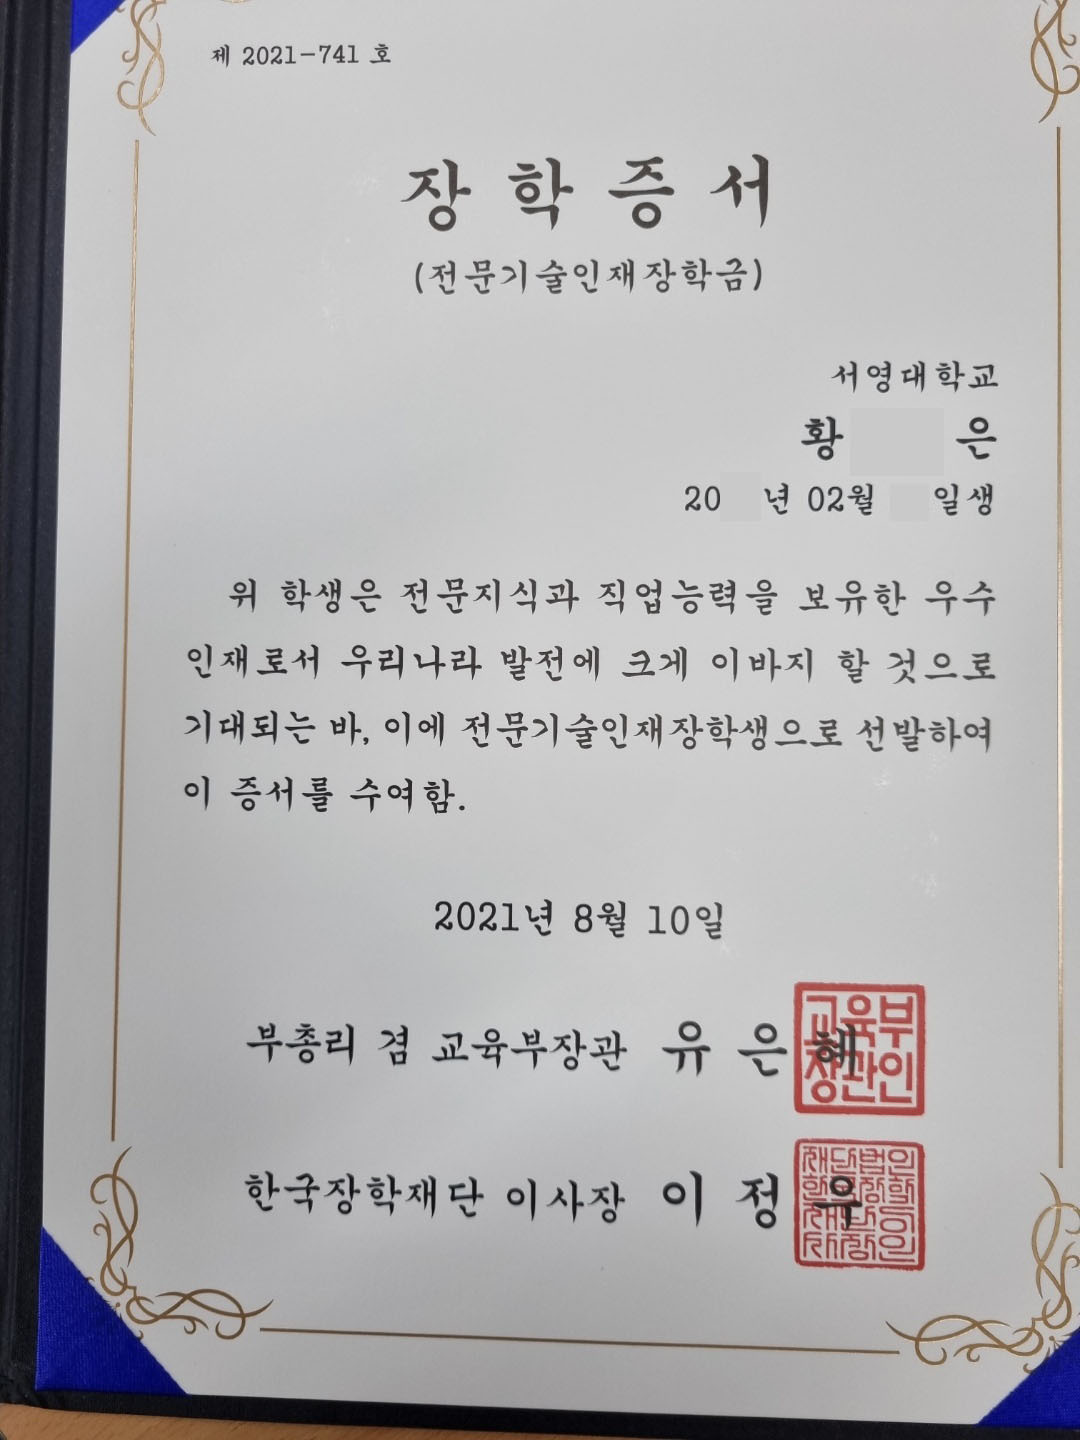 제 2021-741 호
장학증서
(전문기술인재장학금)
서영대학교
황 은
20 년 02월 일생
위 학생은 전문지식과 직업능력을 보유한 우수
인재로서 우리나라 발전에 크게 이바지 할 것으로
기대되는 바, 이에 전문기술인재장학생으로 선발하여
이 증서를 수여함.
2021년 8월 10일
부총리 겸 교육부장관 유은혜
교육부
장관인
한국장학재단 이사장 이정우
재단법인
한국장학
재단이
사장인